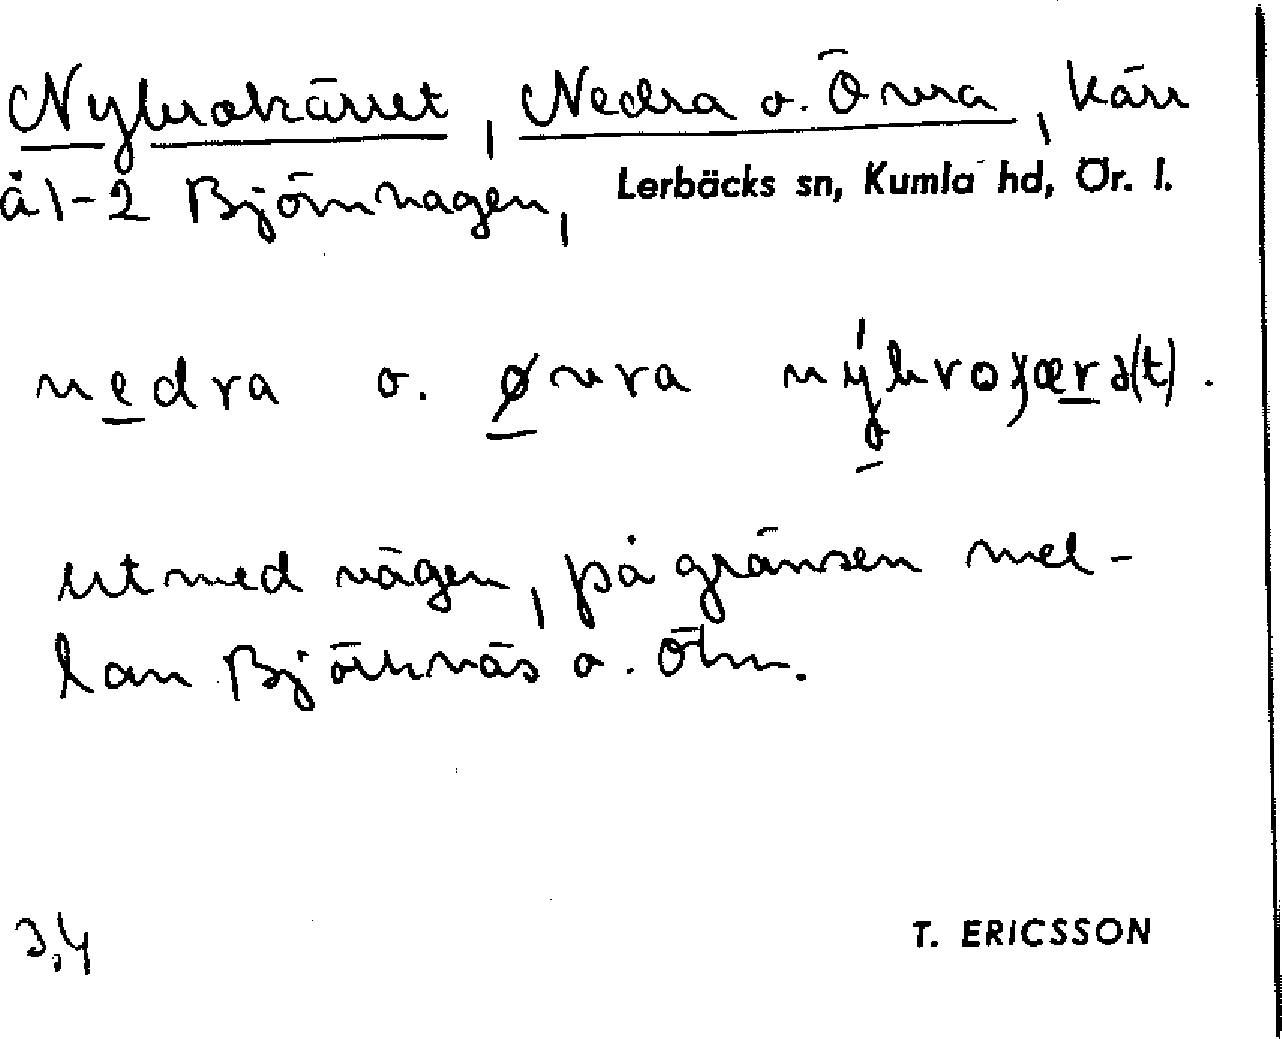 Nybrokärret, Nedra o. Övra, kärr
å 1-2 Björnhagen, Lerbäcks sn, Kumla hd, Ör. l.
nedra o. øvra
utmed vägen, på gränsen mel-
lan Björknäs o. Ölm.
3,4
T. ERICSSON